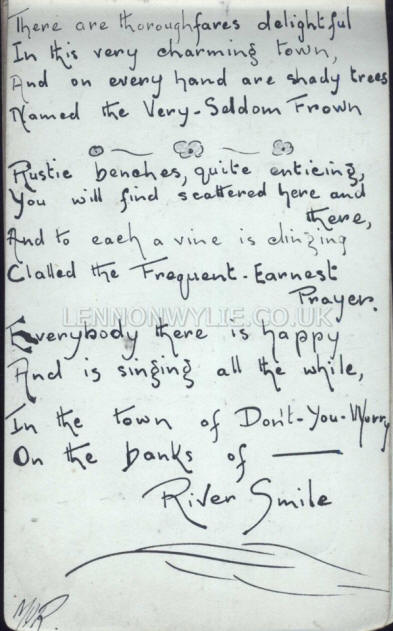 There are thoroughfares delightful
In this very charming town,
And on every hand are shady trees
Named the Very-Seldom Frown
Rustic benches, quite enticing,
You will find scattered here and
there,
And to each a vine is clinging
Clalled the Frequent-Earnest
Prayer.
LENNONWYLIE.CO.UK
Everybody there is happy
And is singing all the while,
In the town of Don't-You-Worry
On the banks of —
River Smile